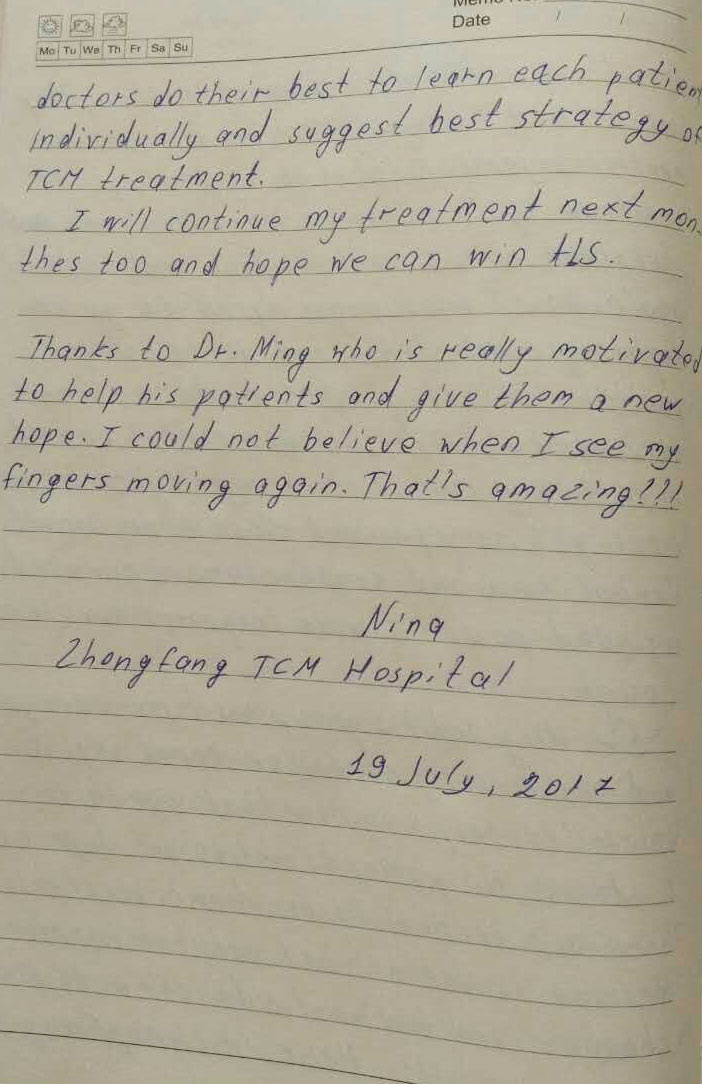 Date / /
Mo Tu We Th Fr Sa Su
doctors do their best to learn each patien
individually and suggest best strategy of
TCM treatment.
I will continue my treatment next mon-
thes too and hope we can win ALS.
Thanks to Dr. Ming who is really motivated
to help his patients and give them a new
hope. I could not believe when I see my
fingers moving again. That's amazing!!!
Nina
Zhongfang TCM Hospital
19 July, 2017